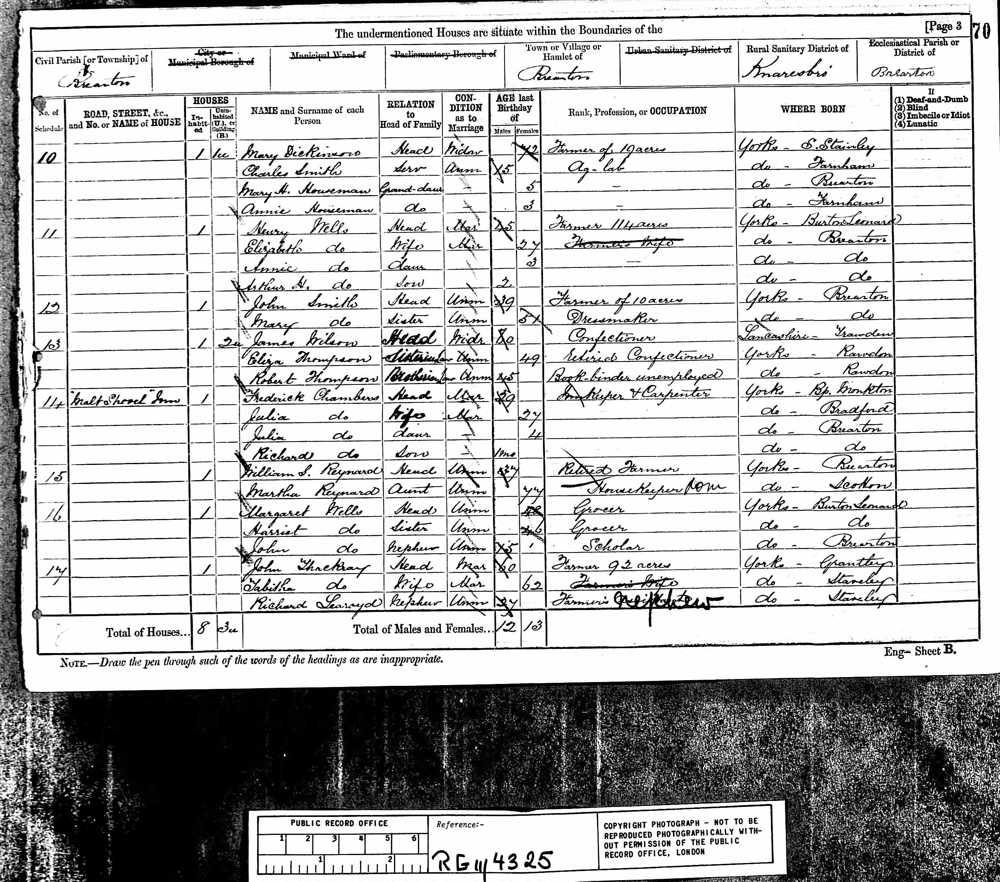 The undermentioned Houses are situate within the Boundaries of the [Page 3 70
Civil Parish [or Township] of Brearton City or Municipal Borough of Municipal Ward of Parliamentary Borough of Town or Village or Hamlet of Brearton Urban Sanitary District of Rural Sanitary District of Knaresbro' Ecclesiastical Parish or District of Brearton
No. of Schedule ROAD, STREET, &c., and No. or NAME of HOUSE HOUSES Inhabited Uninhabited (U.), or Building (B.) NAME and Surname of each Person RELATION to Head of Family CONDITION as to Marriage AGE last Birthday of Males Females Rank, Profession, or OCCUPATION WHERE BORN If (1) Deaf-and-Dumb (2) Blind (3) Imbecile or Idiot (4) Lunatic
10 1 1u Mary Dickinson Head Widow 72 Farmer of 19 acres Yorks - S. Stainley
Charles Smith Serv Unm 15 Ag-lab do - Farnham
Mary H. Houseman Grand-daur - 5 - do - Brearton
Annie Houseman do - 3 - do - Farnham
11 1 Henry Wells Head Mar 25 Farmer 114 acres Yorks - Burton Leonard
Elizabeth do Wife Mar 27 Farmer's Wife do - Brearton
Annie do daur 3 - do - do
Arthur H. do Son 2 do - do
12 1 John Smith Head Unm 39 Farmer of 10 acres Yorks - Brearton
Mary do Sister Unm 51 Dressmaker do - do
13 1 2u James Wilson Head Widr 80 Confectioner Lancashire - Trawden
Eliza Thompson Sister in law Unm 49 Retired Confectioner Yorks - Rawdon
Robert Thompson Brother in law Unm 45 Book-binder unemployed do - Rawdon
14 "Malt Shovel" Inn 1 Frederick Chambers Head Mar 29 Inn Keeper & Carpenter Yorks - Bp. Monkton
Julia do Wife Mar 27 do - Bradford
Julia do daur - 4 do - Brearton
Richard do Son - 1mo do - do
15 1 William S. Reynard Head Unm 37 Retired Farmer Yorks - Brearton
Martha Reynard Aunt Unm 77 Housekeeper Dom do - Scotton
16 1 Margaret Wells Head Unm Grocer Yorks - Burton Leonard
Harriet do Sister Unm 46 Grocer do - do
John do Nephew Unm 15 Scholar do - Brearton
17 1 John Thackray Head Mar 60 Farmer 92 acres Yorks - Grantley
Tabitha do Wife Mar 62 Farmer's Wife do - Staveley
Richard Learoyd Nephew Unm 27 Farmer's nephew do - Staveley
Total of Houses... 8 3u Total of Males and Females... 12 13
NOTE.—Draw the pen through such of the words of the headings as are inappropriate. Eng- Sheet B.
PUBLIC RECORD OFFICE
1 2 3 4 5 6
1 2
Reference:-
RG 11/4325
COPYRIGHT PHOTOGRAPH - NOT TO BE REPRODUCED PHOTOGRAPHICALLY WITHOUT PERMISSION OF THE PUBLIC RECORD OFFICE, LONDON